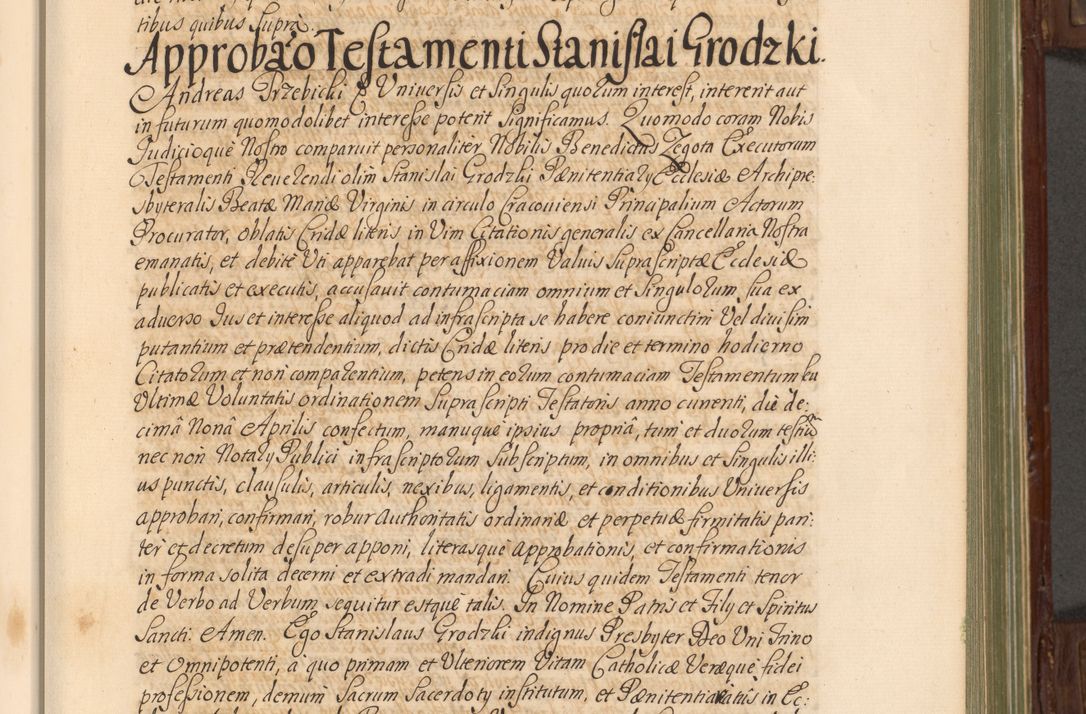 tibus quibus supra.
Approbaõ Testamenti Stanislai Grodzki.
Andreas Trzebicki & Universis et Singulis quorum interest, intererit aut
in futurum quomodolibet interesse poterit significamus. Quomodo coram Nobis
Judicioquè Nostro comparuit personaliter Nobilis Benedictus Zegota Executorum
Testamenti Reverendi olim Stanislai Grodzki Pænitentiary Ecclesiæ Archipre:
sbyteralis Beatæ Mariæ Virginis in circulo Cracoviensi Principalium Actorum
Procurator, oblatis Cridæ literis in Vim Citationis generalis ex Cancellaria Nostra
emanatis, et debitè Uti apparebat per affixionem Valuis suprascriptæ Ecclesiæ
publicatis et executis, accusauit contumaciam omnium et Singulorum, sua ex
aduerso Jus et interesse aliquod ad infrascripta se habere coniunctim Vel diuisim
putantium et prætendentium, dictis Cridæ literis pro die et termino hodierno
Citatorum et non comparentium, petens in eorum contumaciam Testamentum seu
Ultimæ Voluntatis ordinationem Suprascripti Testatoris anno currenti, die de:
cimâ Nonâ Aprilis confectum, manuquè ipsius propriâ, tum et duorum testiũ
nec non Notary Publici infrascriptorum Subscriptum, in omnibus et Singulis illi:
us punctis, clausulis, articulis, nexibus, ligamentis, et conditionibus Universis
approbari, confirmari, robur Authoritatis ordinariæ et perpetuæ firmitatis pari:
ter et decretum desuper apponi, literasquè Approbationis, et confirmationis
in forma solita decerni et extradi mandari. Cuius quidem Testamenti tenor
de Verbo ad Verbum sequitur estquè talis. In Nomine Patris et Fily et Spiritus
Sancti. Amen. Ego Stanislaus Grodzki indignus Presbyter Deo Uni Trino
et Omnipotenti, à quo primam et Ulteriorem Vitam Catholicæ Veræquè fidei
professionem, demum Sacrum Sacerdoty institutum, et Pænitentiariatûs in Ec: